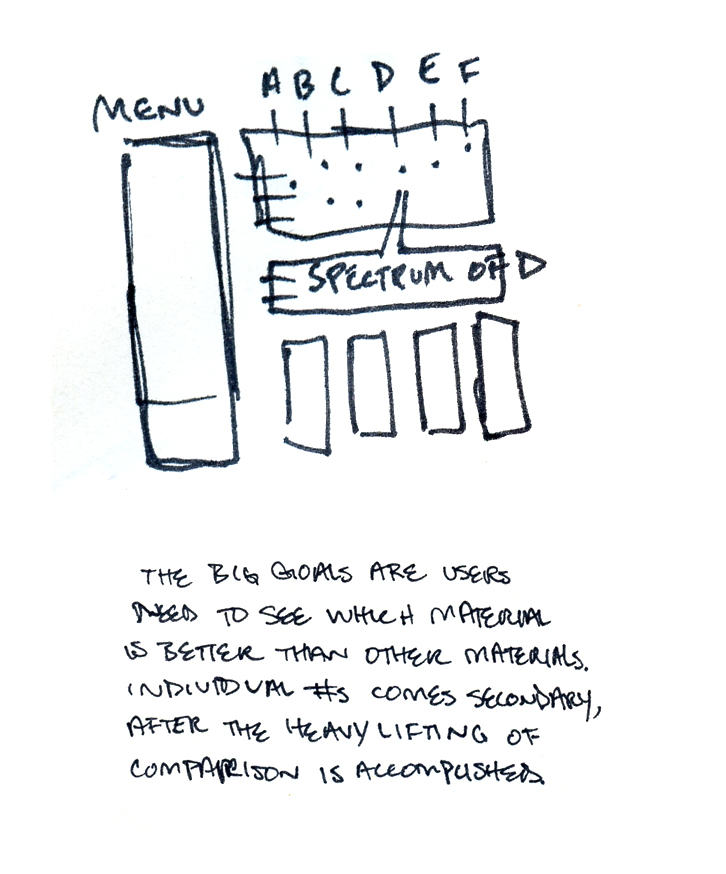 MENU
A B C D E F
SPECTRUM OF D
THE BIG GOALS ARE USERS
NEED TO SEE WHICH MATERIAL
IS BETTER THAN OTHER MATERIALS.
INDIVIDUAL #S COMES SECONDARY,
AFTER THE HEAVY LIFTING OF
COMPARISON IS ACCOMPLISHED.